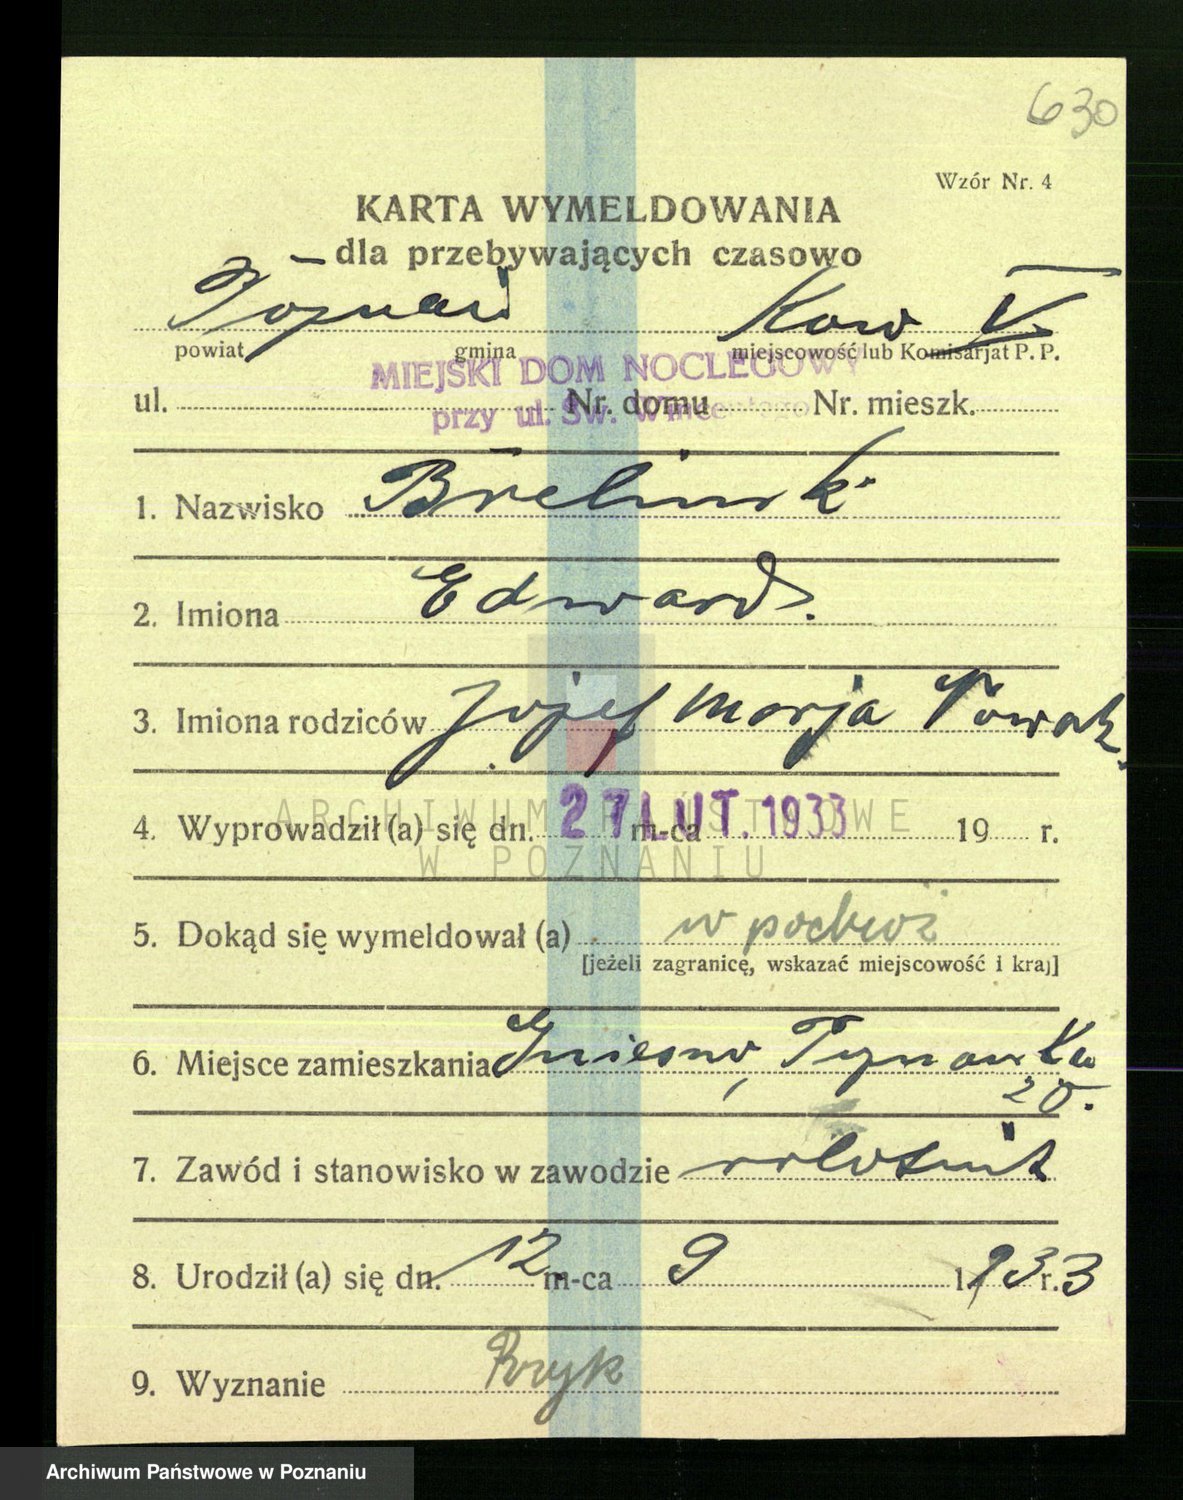 630
Wzór Nr. 4
KARTA WYMELDOWANIA
dla przebywających czasowo
Poznań Kom V.
powiat gmina miejscowość lub Komisarjat P. P.
MIEJSKI DOM NOCLEGOWY
ul. Nr. domu Nr. mieszk.
przy ul. Św. Wincentego
1. Nazwisko
2. Imiona Edward.
3. Imiona rodziców Józef Marja Nowak
4. Wyprowadził (a) się dn. 27 LUT. 1933 m-ca 19 r.
ARCHIWUM PAŃSTWOWE
W POZNANIU
5. Dokąd się wymeldował (a)
[jeżeli zagranicę, wskazać miejscowość i kraj]
6. Miejsce zamieszkania Gniezno,
20.
7. Zawód i stanowisko w zawodzie robotnik
8. Urodził (a) się dn. 12 m-ca 9 1933 r.
9. Wyznanie Rzyk
Archiwum Państwowe w Poznaniu